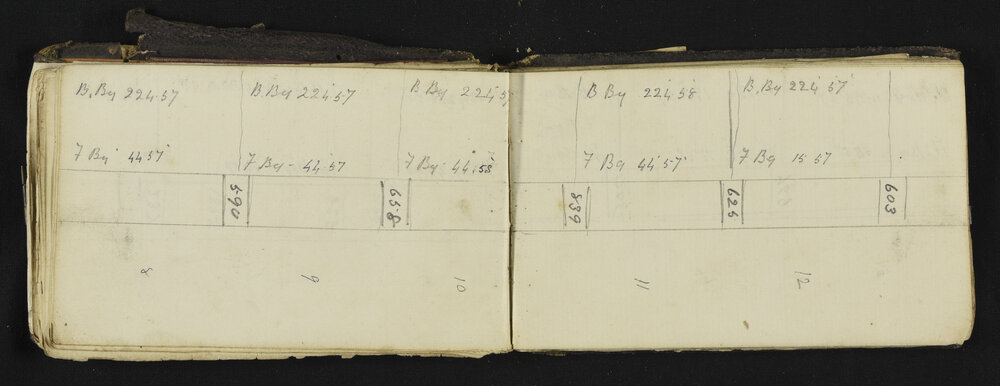 B. By 224.57
7 By 44 57
590
8
B. By 224 57
7 By - 44.57
658
9
B By 224 57
7 By - 44.58
10
839
B By 224 58
7 By 44 57
11
625
B. By 224 57
7 By 15 57
12
603